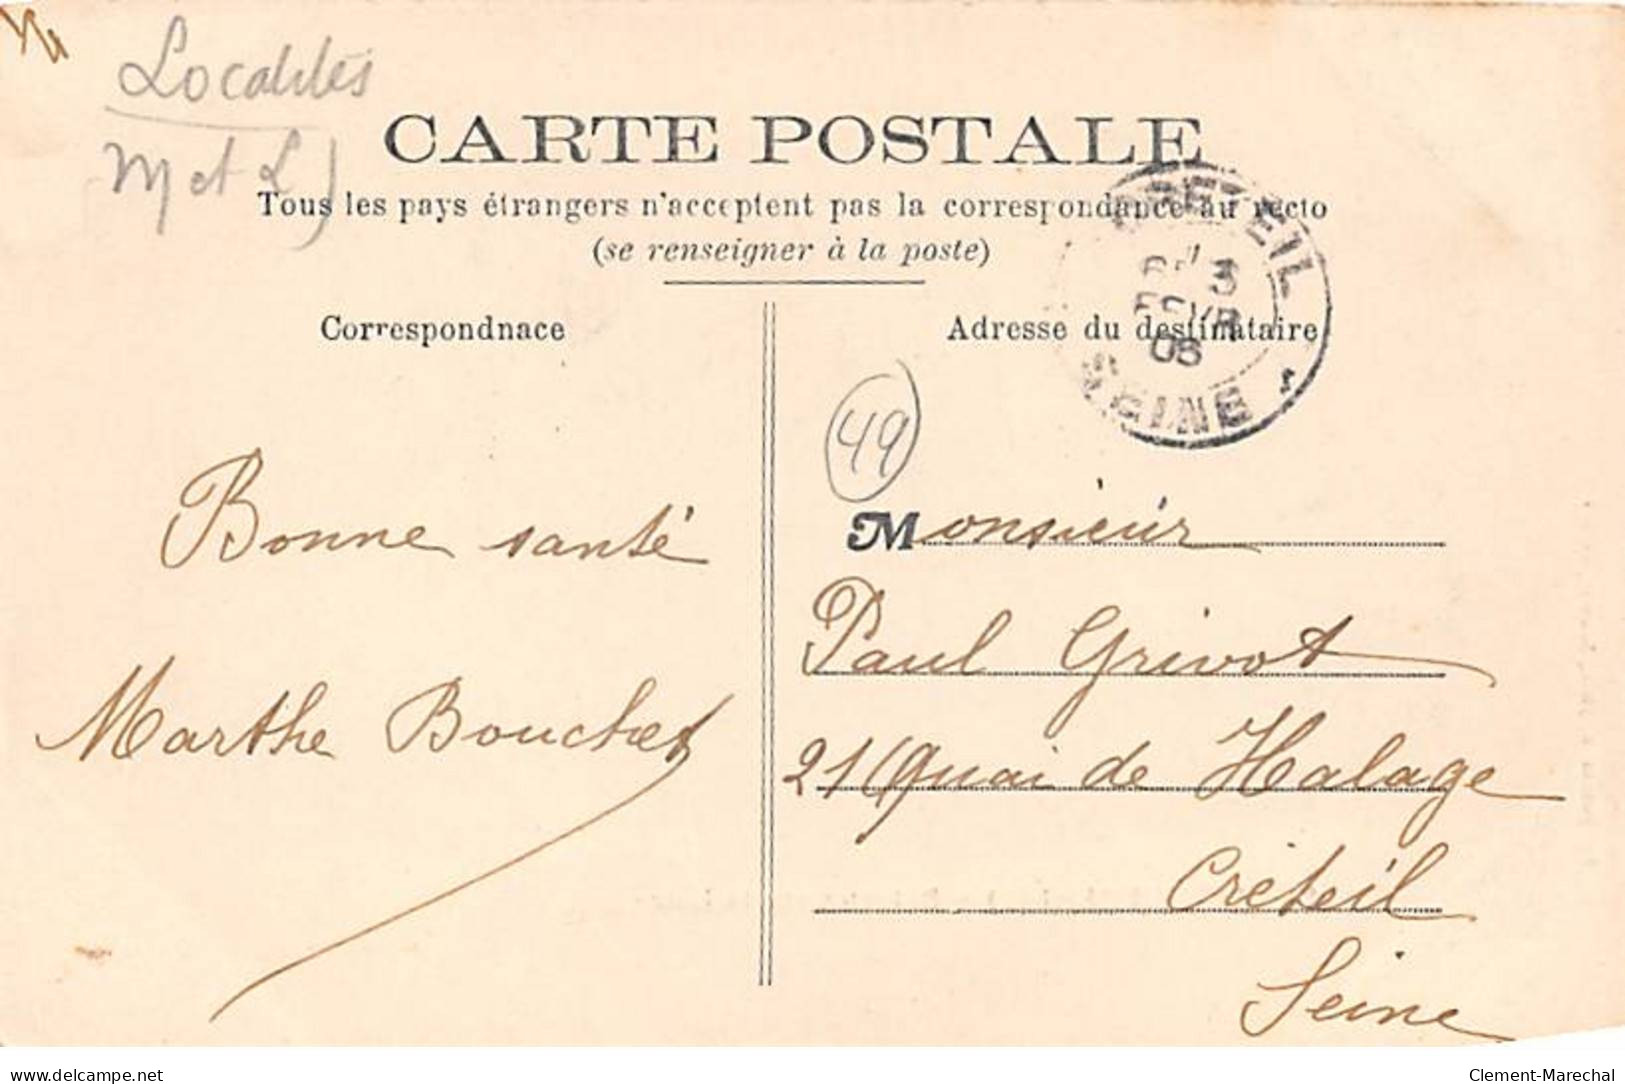 Localités
M et L)
CARTE POSTALE
Tous les pays étrangers n'acceptent pas la correspondance au recto
(se renseigner à la poste)
CRETEIL
3
FEVR
06
SEINE
Correspondnace
Adresse du destinataire
49
Bonne santé
Marthe Bouchet
Monsieur
Paul Grivot
21 Quai de Halage
Créteil
Seine
delcampe.net
Clement-Marechal